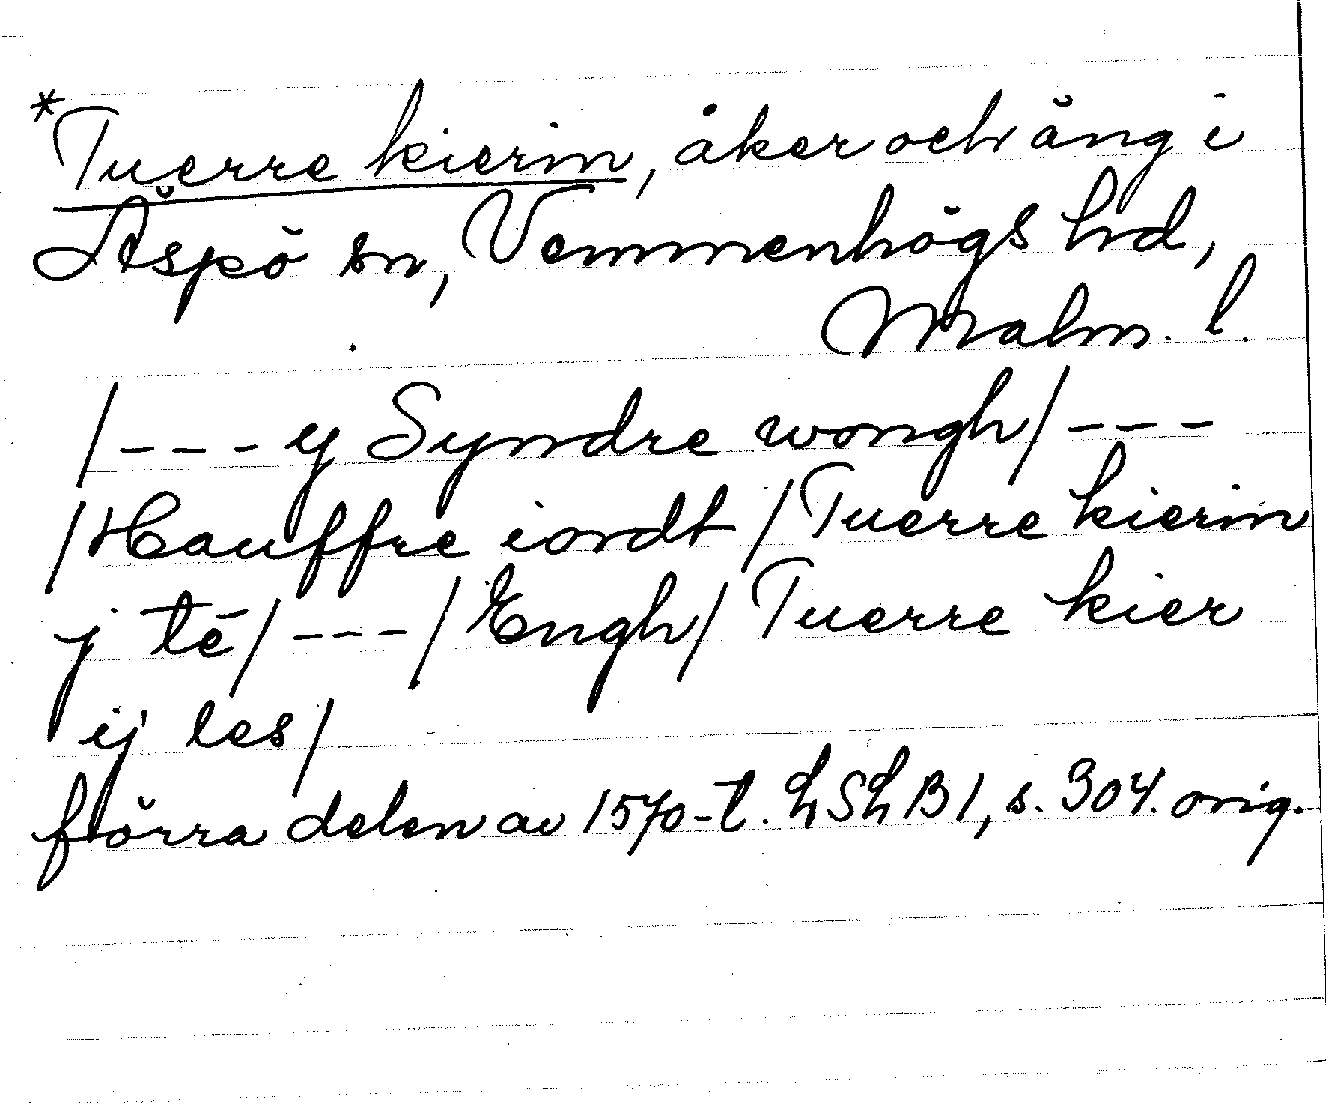 *Tuerre kierin, åker och äng i
Äspö sn, Vemmenhögs hd,
Malm. l.
/--- y Syndre wongh/ ---
/Hauffre iordt/Tuerre kierin
j té/---/Engh/Tuerre kier
ij les/
förra delen av 1570-t. LSLB1, s. 304. orig.